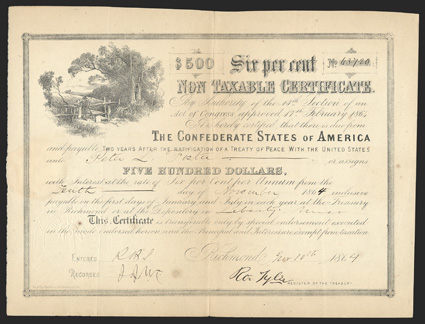 $500 Six per cent No
NON TAXABLE CERTIFICATE.
By Authority of the 14th Section of an
Act of Congress approved 17th February 1864
It is hereby certified that there is due from
THE CONFEDERATE STATES OF AMERICA
and payable TWO YEARS AFTER THE RATIFICATION OF A TREATY OF PEACE WITH THE UNITED STATES
unto Peter L. or assigns
FIVE HUNDRED DOLLARS,
with Interest at the rate of Six per Cent per Annum from the
Tenth day of 1864 inclusive
payable on the first days of January and July in each year at the Treasury
in Richmond or at the Depository in Liberty
This Certificate is transferable only by special endorsement executed
in the mode indorsed hereon and the Principal and Interest are exempt from taxation.
ENTERED
RECORDED
Richmond, 1864
Ro. Tyler
REGISTER OF THE TREASURY.